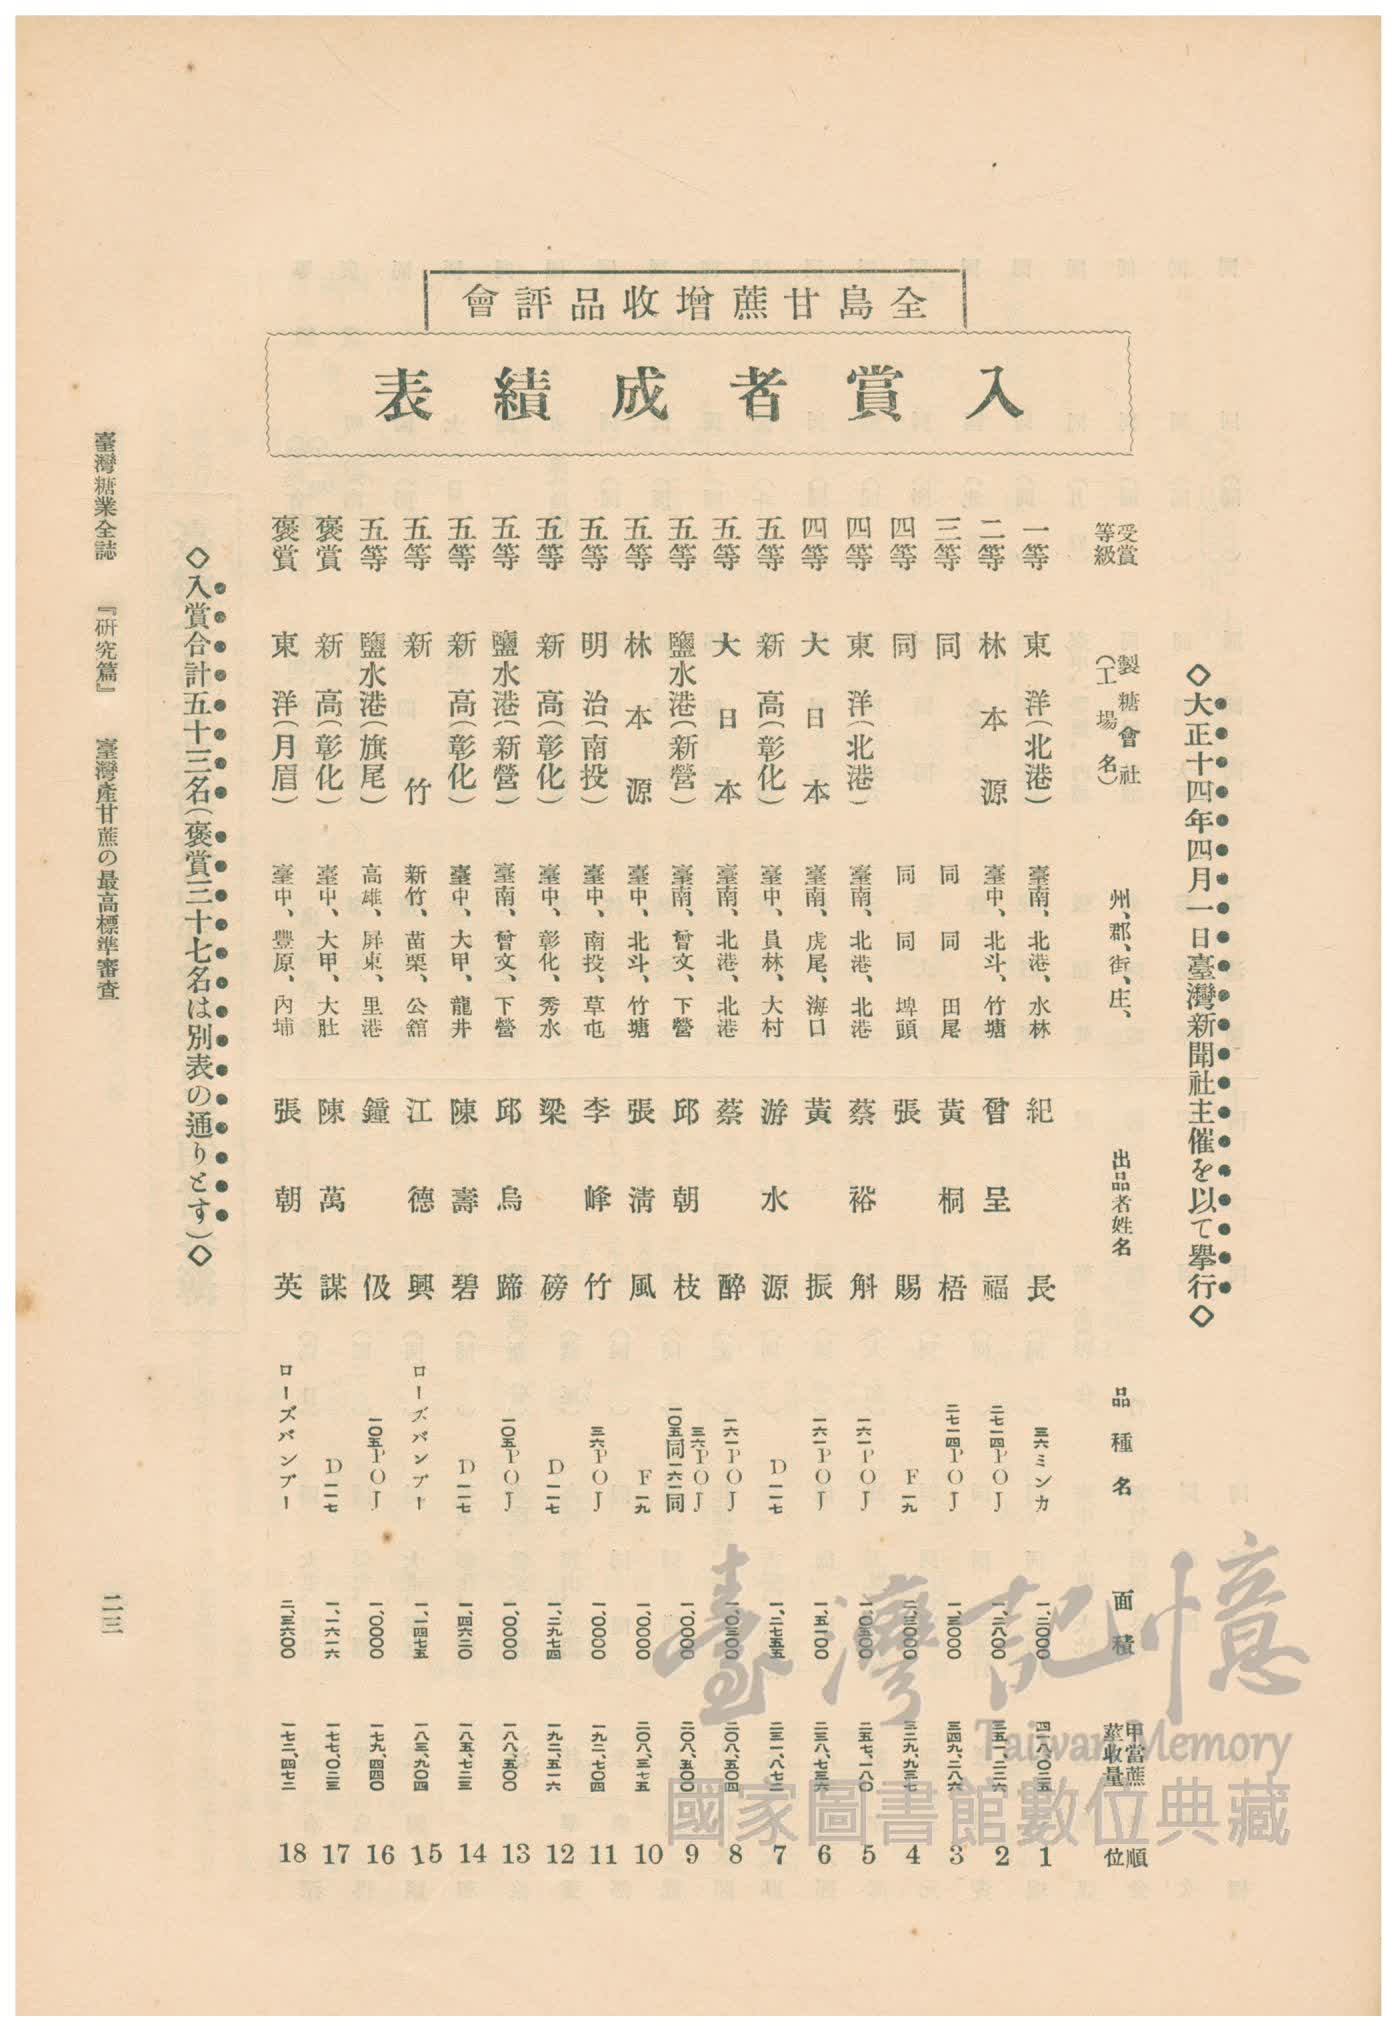 全島甘蔗增收品評會
入賞者成績表
◇大正十四年四月一日臺灣新聞社主催を以て擧行◇
受賞等級 製糖會社(工場名) 州、郡、街、庄、 出品者姓名 品種名 面積 甲當蔗莖收量 順位
一等 東洋(北港) 臺南、北港、水林 紀長 三六ミンカ 一、二〇〇〇 四一八、〇二五 1
二等 林本源 臺中、北斗、竹塘 曾呈福 二七一四POJ 一、二八〇〇 三五一、二二六 2
三等 同 同 同 田尾 黃桐梧 二七一四POJ 一、三〇〇〇 三四九、二八六 3
四等 同 同 同 埤頭 張賜 F一九 二、三〇〇〇 三二九、九三七 4
四等 東洋(北港) 臺南、北港、北港 蔡裕斛 一六一POJ 一、〇三〇〇 二五七、一八〇 5
四等 大日本 臺南、虎尾、海口 黃振 一六一POJ 一、五一〇〇 二三八、七三六 6
五等 新高(彰化) 臺中、員林、大村 游水源 D一一七 一、二七五五 二三一、八七二 7
五等 大日本 臺南、北港、北港 蔡醉 一六一POJ 一、〇三〇〇 二〇八、五〇四 8
五等 鹽水港(新營) 臺南、曾文、下營 邱朝枝 三六POJ 一〇五同一六一同 一、〇〇〇〇 二〇八、五〇〇 9
五等 林本源 臺中、北斗、竹塘 張淸風 F一九 一、〇〇〇〇 二〇八、三七五 10
五等 明治(南投) 臺中、南投、草屯 李峰竹 三六POJ 一、〇〇〇〇 一九二、七〇四 11
五等 新高(彰化) 臺中、彰化、秀水 梁磅 D一一七 一、二九七四 一九二、五一六 12
五等 鹽水港(新營) 臺南、曾文、下營 邱烏蹄 一〇五POJ 一、〇〇〇〇 一八八、五〇〇 13
五等 新高(彰化) 臺中、大甲、龍井 陳壽碧 D一一七 一、四六二〇 一八五、七二三 14
五等 新竹 新竹、苗栗、公館 江德興 ローズバンブー 一、一四七五 一八三、九〇四 15
五等 鹽水港(旗尾) 高雄、屛東、里港 鐘伋 一〇五POJ 一、〇〇〇〇 一七九、四四〇 16
褒賞 新高(彰化) 臺中、大甲、大肚 陳萬謀 D一一七 一、一六一六 一七七、〇二三 17
褒賞 東洋(月眉) 臺中、豐原、內埔 張朝英 ローズバンブー 二、三六〇〇 一七二、四七二 18
◇入賞合計五十三名(褒賞三十七名は別表の通りとす)◇
臺灣糖業全誌 『硏究篇』 臺灣產甘蔗の最高標準審査
二三
臺灣記憶
Taiwan Memory
國家圖書館數位典藏